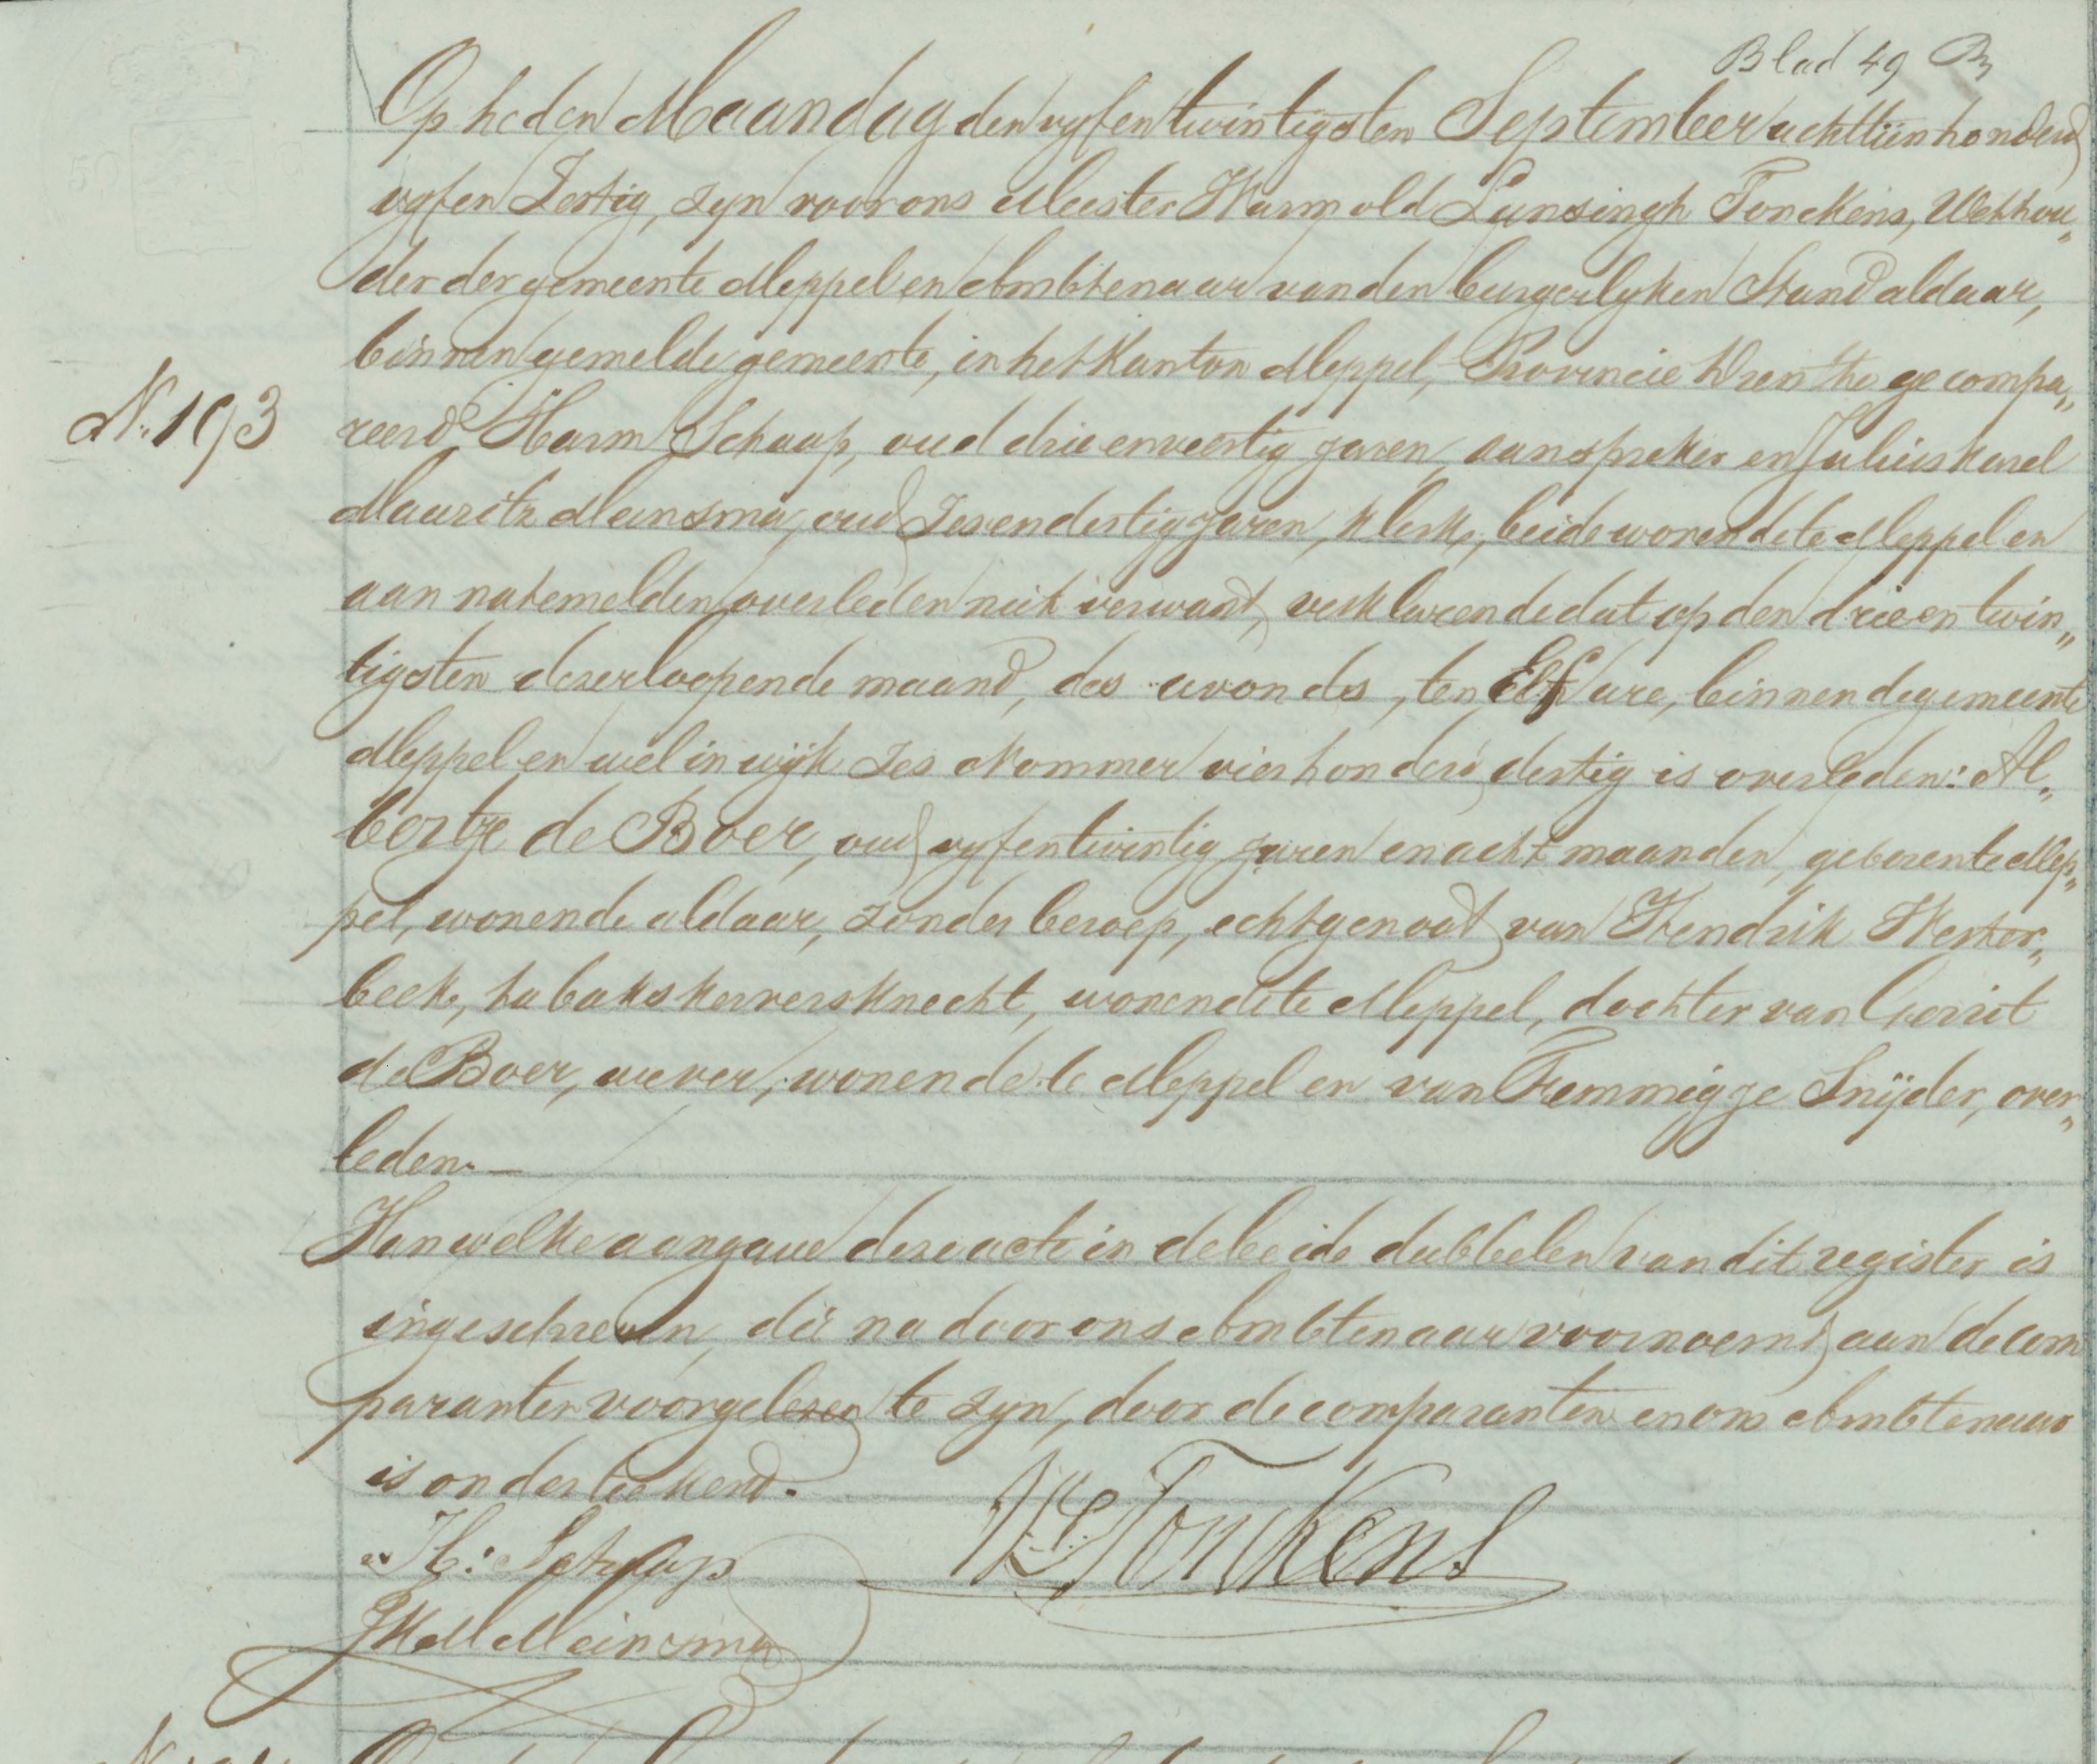 Blad 49 B
Op heden Maandag den vyfentwintigsten September achttienhonderd
vyfen Zestig, zyn voor ons Meester Warmold Lunsingh Tonckens, Wethou„
der der gemeente Meppel en Ambtenaar van den burgerlyken Stand aldaar,
binnen gemelde gemeente, in het Kanton Meppel, Provincie Drenthe gecompa„
N: 193
reerd Harm Schaap, oud drieenveertig jaren, aanspreker en Julius Karel
Mauritz Meinsma, oud Zesendertig jaren, klerk, beide wonende te Meppel en
aan natemelden overleden niet verwant, verklarende dat op den drieentwin„
tigsten dezer loopende maand, des avonds, ten Elf ure, binnen de gemeente
Meppel en wel in wijk zes Nommer vierhonderd dertig is overleden: Al„
bertje de Boer, oud vyfentwintig jaren en acht maanden, geboren te Mep„
pel, wonende aldaar, zonder beroep, echtgenoot van Hendrik Wester„
beek, tabakskerversknecht, wonende te Meppel, dochter van Gerrit
de Boer, wever, wonende te Meppel en van Femmigje Snijder, over„
leden.—
Van welke aangave deze acte in de beide dubbelen van dit register is
ingeschreven, die na door ons Ambtenaar voornoemd aan de com
paranten voorgelezen te zyn, door de comparanten en ons Ambtenaar
is onderteekend.
H: Schaap
WLTonckens
JKM Meinsma